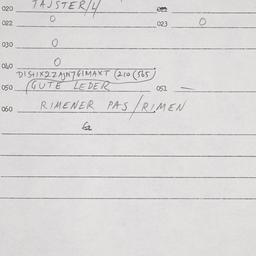 020 TAJSTER/4
022 0 023 0
030 0
040 0
(210 (565)
050 GUTE LEDER 051 —
060 RIMENER PAS/RIMEN